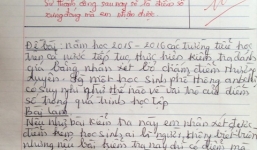 sự thành công sau này sẽ là chiếc số
tương đồng mà em nhận được
Đề bài: năm học 2015 - 2016 các trường tiểu học
trên cả nước tiếp tục thực hiện kiểm tra đánh
giá bằng nhận xét bỏ chấm điểm thường
xuyên. Là một học sinh phổ thông anh(chị)
có suy nghĩ như thế nào về vai trò của điểm
số trong quá trình học tập
Bài làm
Nếu như bài kiểm tra này em nhận xét được
điểm kém học sinh ai là người, không biết trên
nhưng nếu bài kiểm tra này chỉ có điểm mà